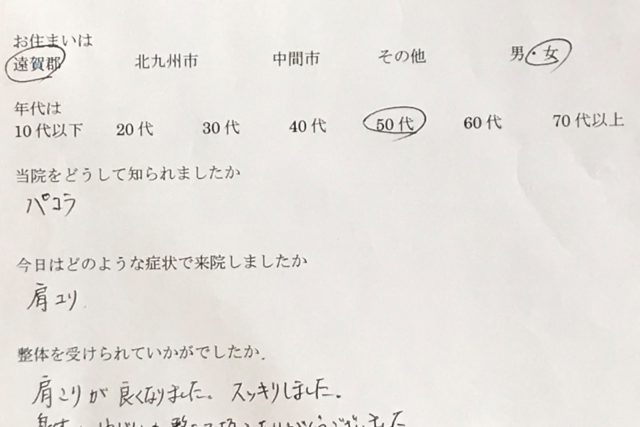 お住まいは
遠賀郡 北九州市 中間市 その他 男・女
年代は
10代以下 20代 30代 40代 50代 60代 70代以上
当院をどうして知られましたか
パコラ
今日はどのような症状で来院しましたか
肩コリ
整体を受けられていかがでしたか.
肩こりが良くなりました。スッキリしました。